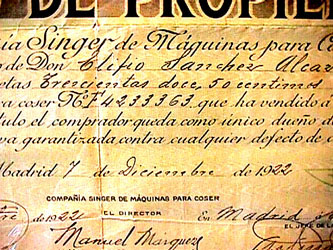 DE PROPIE
ía Singer de Máquinas para C
de Don Elifio Sanchez Alcar
etas Trescientas doce, 50 centimos
ra coser Nº F4233363, que ha vendido á
tulo el comprador queda como único dueño d
va garantizada contra cualquier defecto de c
Madrid 7 de Diciembre de 1922
COMPAÑIA SINGER DE MÁQUINAS PARA COSER
bre de 1922 EL DIRECTOR En Madrid
EL JEFE DE
Manuel Márquez